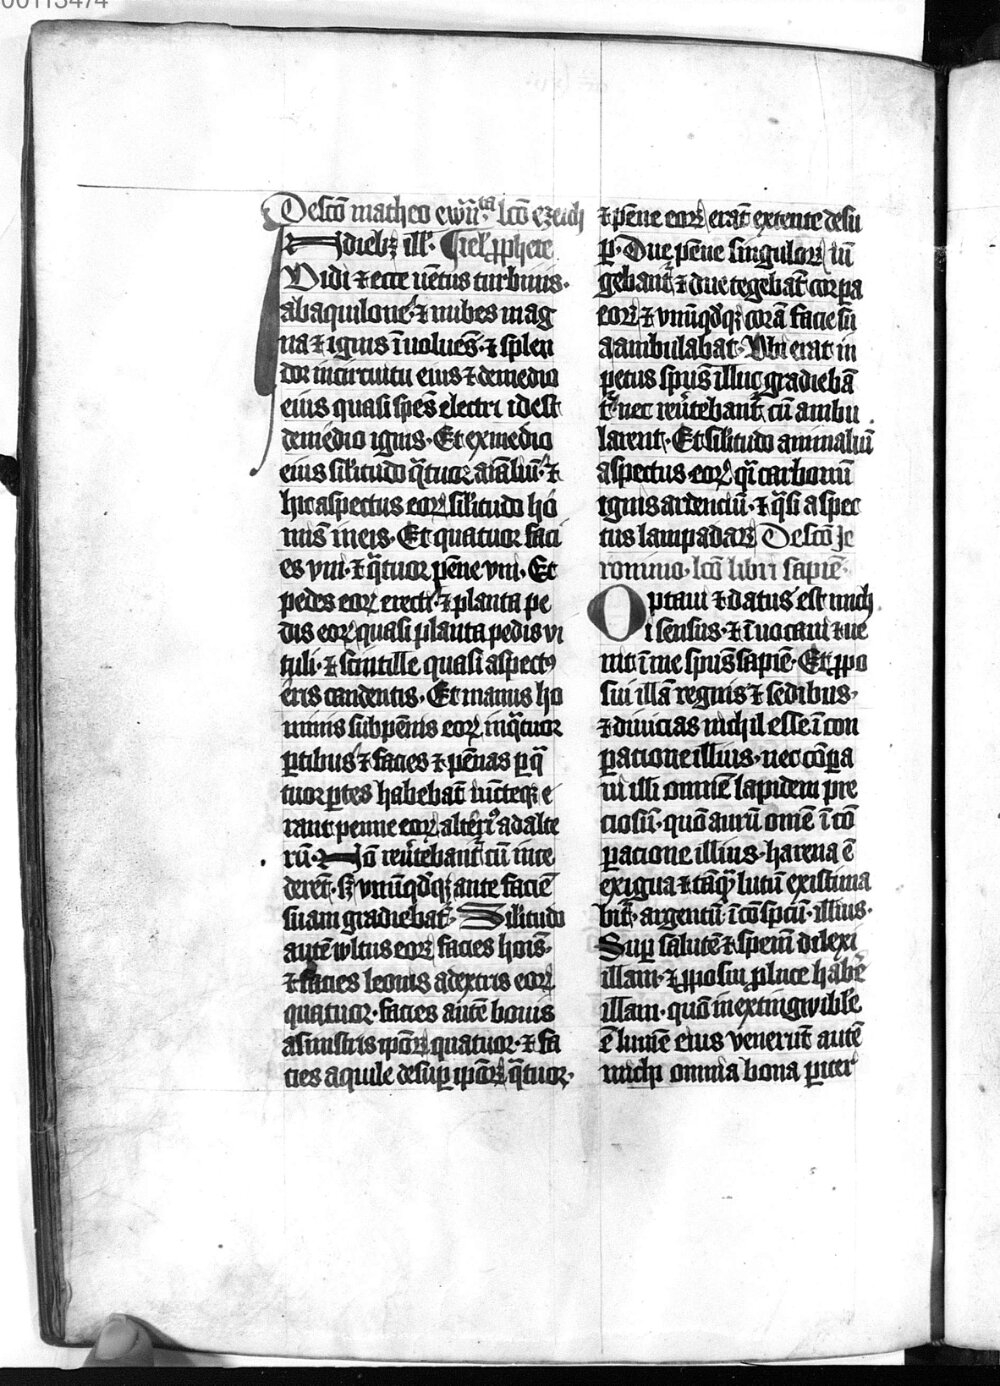 00113474
De sco᷎ matheo ewn̄.ta lco᷎ ezech
In dieb; ill'. ielꝝ ꝓphete
Vidi ⁊ ecce uentus turbinis.
ab aquilone. ⁊ nubes mag
na ⁊ ignis īuoluēs. ⁊ splen
dor in circuitu eius ⁊ de medio
eius quasi spēs electri id est
de medio ignis. Et ex medio
eius sil'itudo q̄tuor aīaliū. ⁊
hic aspectus eoꝝ sil'itudo ho
mīs in eis. Et quatuor faci
es vni. ⁊ q̄tuor pēne vni. Et
pedes eoꝝ erecti. ⁊ planta pe
dis eoꝝ quasi planta pedis vi
tuli. ⁊ scintille quasi aspectꝰ
eris candentis. Et manus ho
minis sub pēnis eoꝝ in q̄tuor
ꝑtibus ⁊ facies ⁊ pēnas ꝑ q̄
tuor ꝑtes habebāt iūcteq; e
rant penne eoꝝ alterīꝰ ad alte
rū. Nō reu̾tebant̾ cū ince
derēt. sꝫ vnūq̄dq; ante faciē
suam gradiebat̾. Sil'itudo
autē wltus eoꝝ facies hoīs.
⁊ facies leonis a dextris eoꝝ
quatuor. facies autē bouis
a sinistris ip̄oꝝ quatuor. ⁊ fa
cies aquile desuꝑ ip̄oꝝ q̄tuor.
⁊ pēne eoꝝ erāt extente desu
ꝑ. Due pēne singuloꝝ iū
gebant̾ ⁊ due tegebāt corꝑa
eoꝝ ⁊ vnūq̄dq; corā facie su
a ambulabat. Vbi erat in
petus spūs illuc gradiebā
t̾ nec reu̾tebant̾ cū ambu
larent. Et sil'itudo animaliū
aspectus eoꝝ q̄si carbonū
ignis ardenciū. ⁊ q̄si aspec
tus lampadaꝝ De sco᷎ Je
ronimo. lco᷎ libri sapiē.
Optaui ⁊ datus est mich
i sensus. ⁊ īuocaui ⁊ ue
nit ī me spūs sapiē. Et ꝓpo
sui illā regnis ⁊ sedibus.
⁊ diuicias nichil esse ī con
ꝑacione illius. nec cōꝑa
ui illi omnē lapidem pre
ciosū. quō aurū omē ī cō
ꝑacione illius. harena ē
exigua ⁊ tāq̄ lutū existima
bit̾. argentū ī cōspcū. illius.
Suꝑ salutē ⁊ speciē dilexi
illam. ⁊ ꝓposui ꝓ luce habē
illam. quō inextingwibil'e
ē lumē eius venerūt autē
michi omnia bona ꝑiter